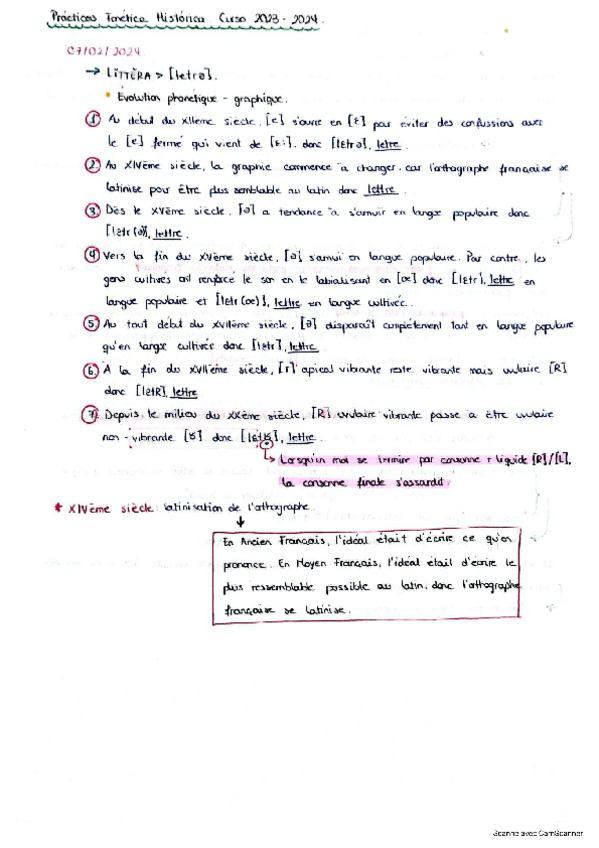 Prácticas Fonética Histórica Curso 2023 - 2024.
07/02/2024
→ LĬTTĔRA > [letrə].
• Évolution phonetique - graphique.
① Au début du XIIème siècle, [e] s'ouvre en [ɛ] par éviter des confussions avec
le [e] fermé qui vient de [ɛ:]. donc [lɛtrə], letre.
② Au XIVème siècle, la graphie commence à changer. car l'orthographe française se
latinise pour être plus semblable au latin donc lettre.
③ Dès le XVème siècle, [ə] a tendance à s'amuir en langue populaire donc
[lɛtr(ə)], lettre.
④ Vers la fin du XVème siècle, [ə] s'amui en langue populaire. Par contre, les
gens cultivés ont renforcé le son en le labialisant en [œ] donc [lɛtr], lettre en
langue populaire et [lɛtr(œ)], lettre en langue cultivée.
⑤ Au tout début du XVIIème siècle, [ə] disparaît complétement tant en langue populaire
qu'en langue cultivée donc [lɛtr], lettre.
⑥ À la fin du XVIIème siècle, [r] apical vibrante reste vibrante mais uvulaire [R]
donc [lɛtR], lettre
⑦ Depuis le milieu du XXème siècle, [R] uvulaire vibrante passe à être uvulaire
non-vibrante [ʁ] donc [lɛtʁ̥], lettre.
↳ Lorsqu'un mot se termine par consonne + liquide [R]/[L],
la consonne finale s'assourdit
* XIVème siècle: latinisation de l'orthographe.
↓
En Ancien Français, l'idéal était d'écrire ce qu'on
prononce. En Moyen Français, l'idéal était d'écrire le
plus ressemblable possible au latin. donc l'orthographe
française se latinise.
Scanné avec CamScanner